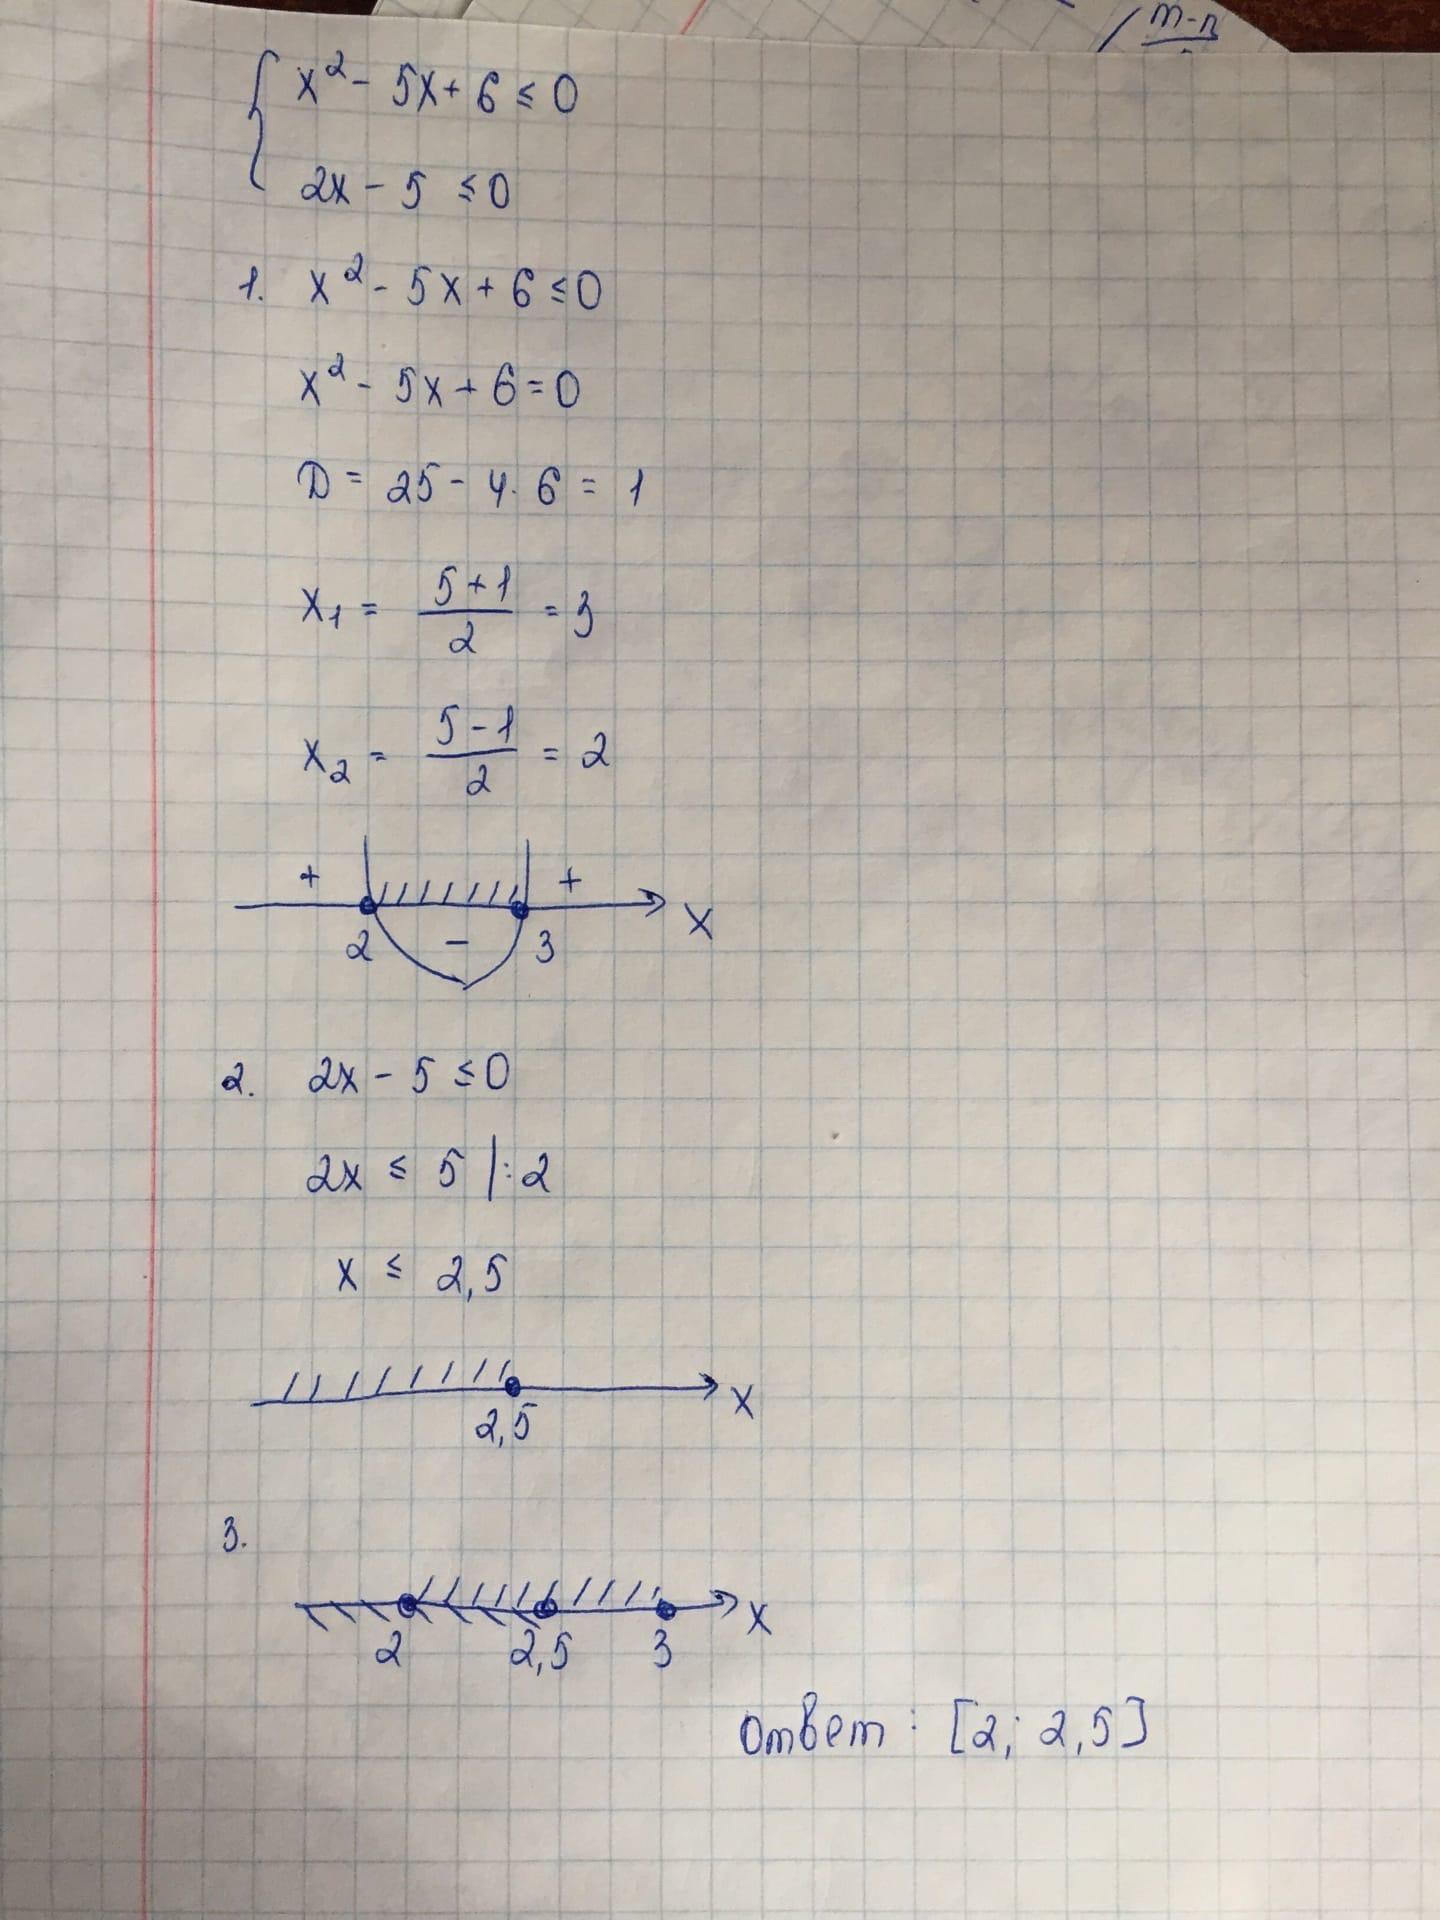 m-n
{ x² - 5x + 6 ≤ 0
2x - 5 ≤ 0
1. x² - 5x + 6 ≤ 0
x² - 5x + 6 = 0
D = 25 - 4 · 6 = 1
x₁ = (5+1)/2 = 3
x₂ = (5-1)/2 = 2
+ +
x
2 - 3
2. 2x - 5 ≤ 0
2x ≤ 5 |:2
x ≤ 2,5
x
2,5
3.
x
2 2,5 3
Ответ: [2; 2,5]